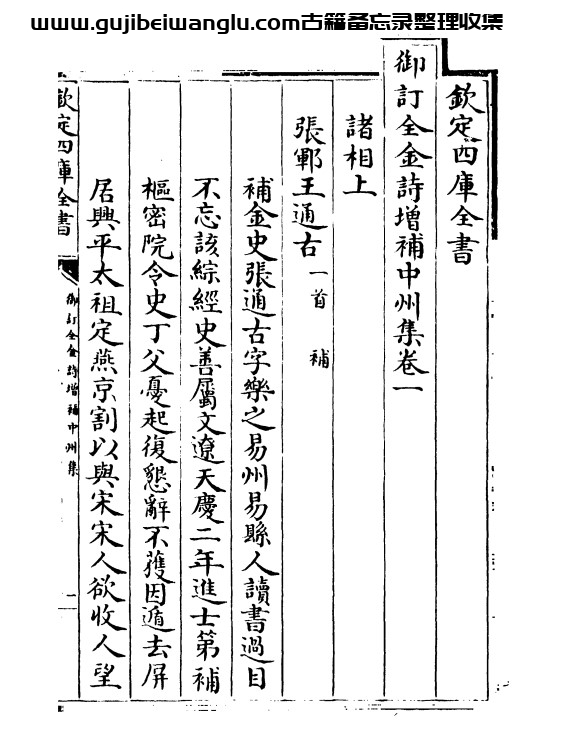 www.gujibeiwanglu.com古籍备忘录整理收集
欽定四庫全書
御訂全金詩增補中州集卷一
諸相上
張鄆王通古一首 補
補金史張通古字樂之易州易縣人讀書過目
不忘該綜經史善屬文遼天慶二年進士第補
樞密院令史丁父憂起復懇辭不獲因遁去屏
居興平太祖定燕京割以與宋宋人欲收人望
欽定四庫全書
御訂全金詩增補中州集
一